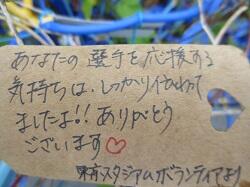 あなたの 選手を応援する
気持ちは、しっかり伝わって
ましたよ!! ありがとう
ございます♡
スタジアムボランティアより